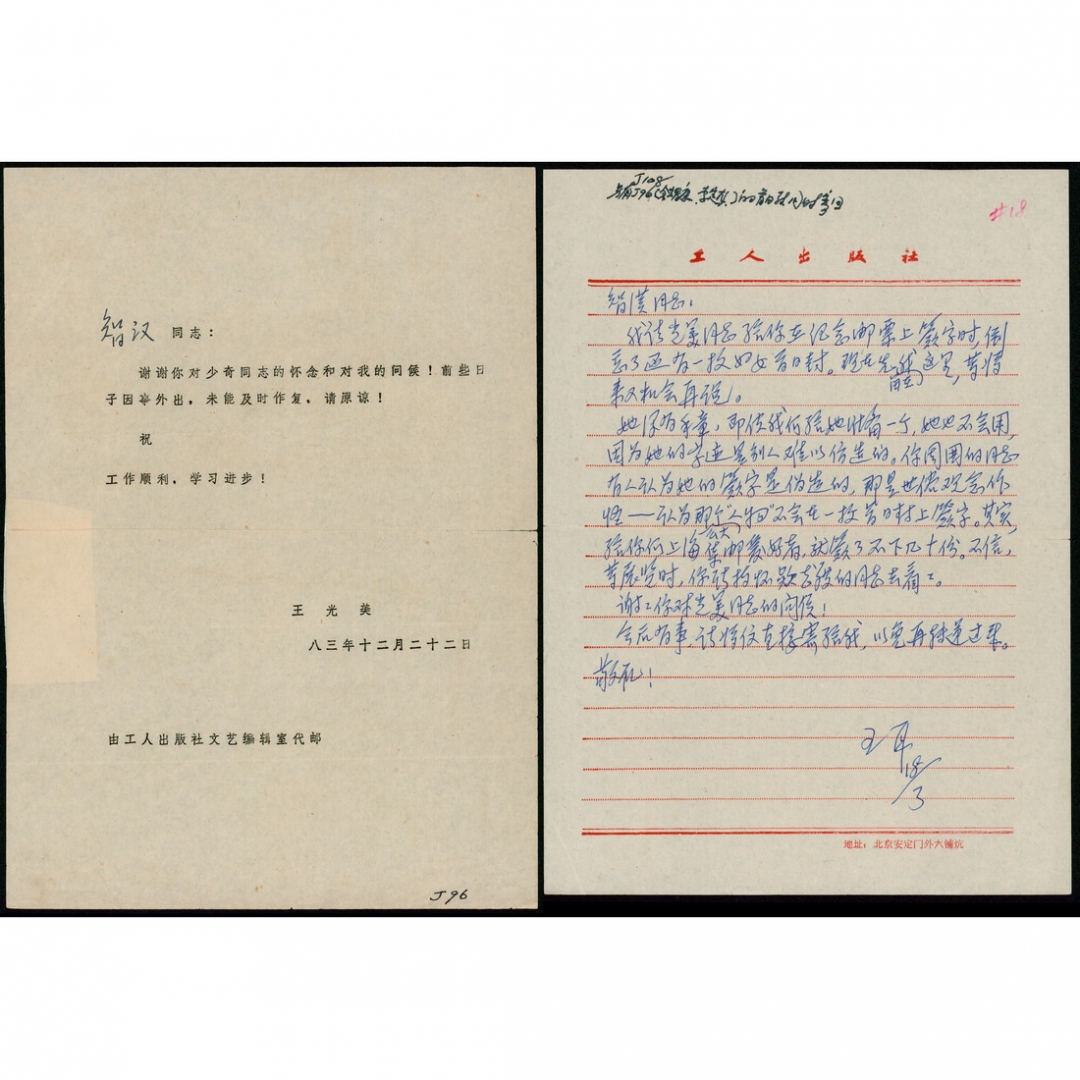 智汉 同志：
谢谢你对少奇同志的怀念和对我的问候！前些日
子因事外出，未能及时作复，请原谅！
祝
工作顺利，学习进步！
王光美
八三年十二月二十二日
由工人出版社文艺编辑室代邮
J96
J108
#18
工人出版社
智漢同志：
我请光美同志给你在纪念邮票上簽字时，倒
忘了还有一枚妇女首日封。现在先 这里，等将
来又机会再说。
她没有手章，即使我们给她 一个，她也不会用，
因为她的字迹是别人难以仿造的。你周围的同志
有人认为她的簽字是伪造的，那是世俗观念作
怪——认为 人物不会在一枚首日封上簽字。其实，
给你们上海集邮爱好者，就簽了不下几十份。不信，
等展览时，你 同志去看看。
谢谢你对光美同志的问候！
今后有事，请将信直接寄给我，以免再转递过来。
敬礼！
王
18/3
地址：北京安定门外六铺炕